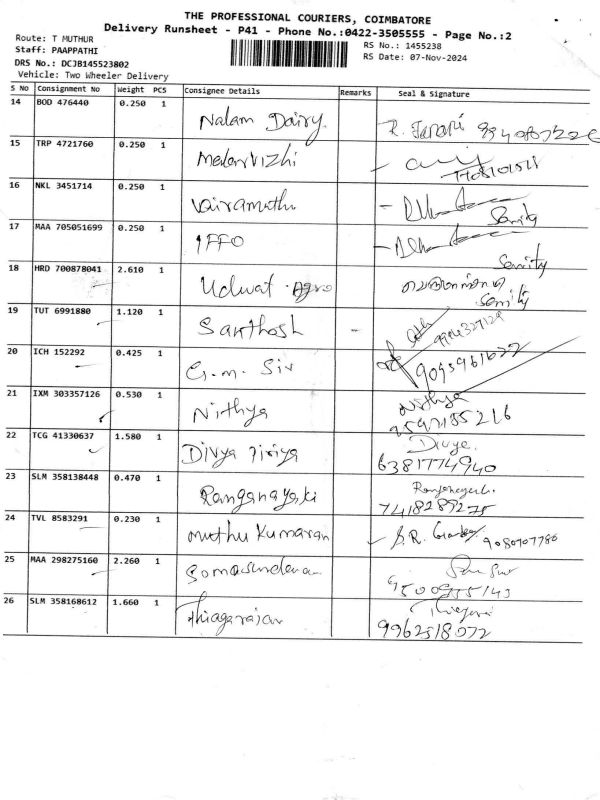 THE PROFESSIONAL COURIERS, COIMBATORE
Delivery Runsheet - P41 - Phone No.:0422-3505555 - Page No.:2
Route: T MUTHUR
Staff: PAAPPATHI
RS No.: 1455238
DRS No.: DCJB145523802
RS Date: 07-Nov-2024
Vehicle: Two Wheeler Delivery
S No Consignment No Weight PCS Consignee Details Remarks Seal & Signature
14 BOD 476440 0.250 1 Nalam Dairy
15 TRP 4721760 0.250 1
16 NKL 3451714 0.250 1 Vairamuthu
17 MAA 705051699 0.250 1 IFFO
18 HRD 700878041 2.610 1 Udwat Agro
19 TUT 6991880 1.120 1 Santhosh -
20 ICH 152292 0.425 1 G.m. Siv 9095961622
21 IXM 303357126 0.530 1 Nithya Nithya
22 TCG 41330637 1.580 1 Divya Divye
6381774940
23 SLM 358138448 0.470 1 Ranganayaki
7418289275
24 TVL 8583291 0.230 1 muthu Kumaran 9080707786
25 MAA 298275160 2.260 1
26 SLM 358168612 1.660 1 Thiagarajan
9962518072